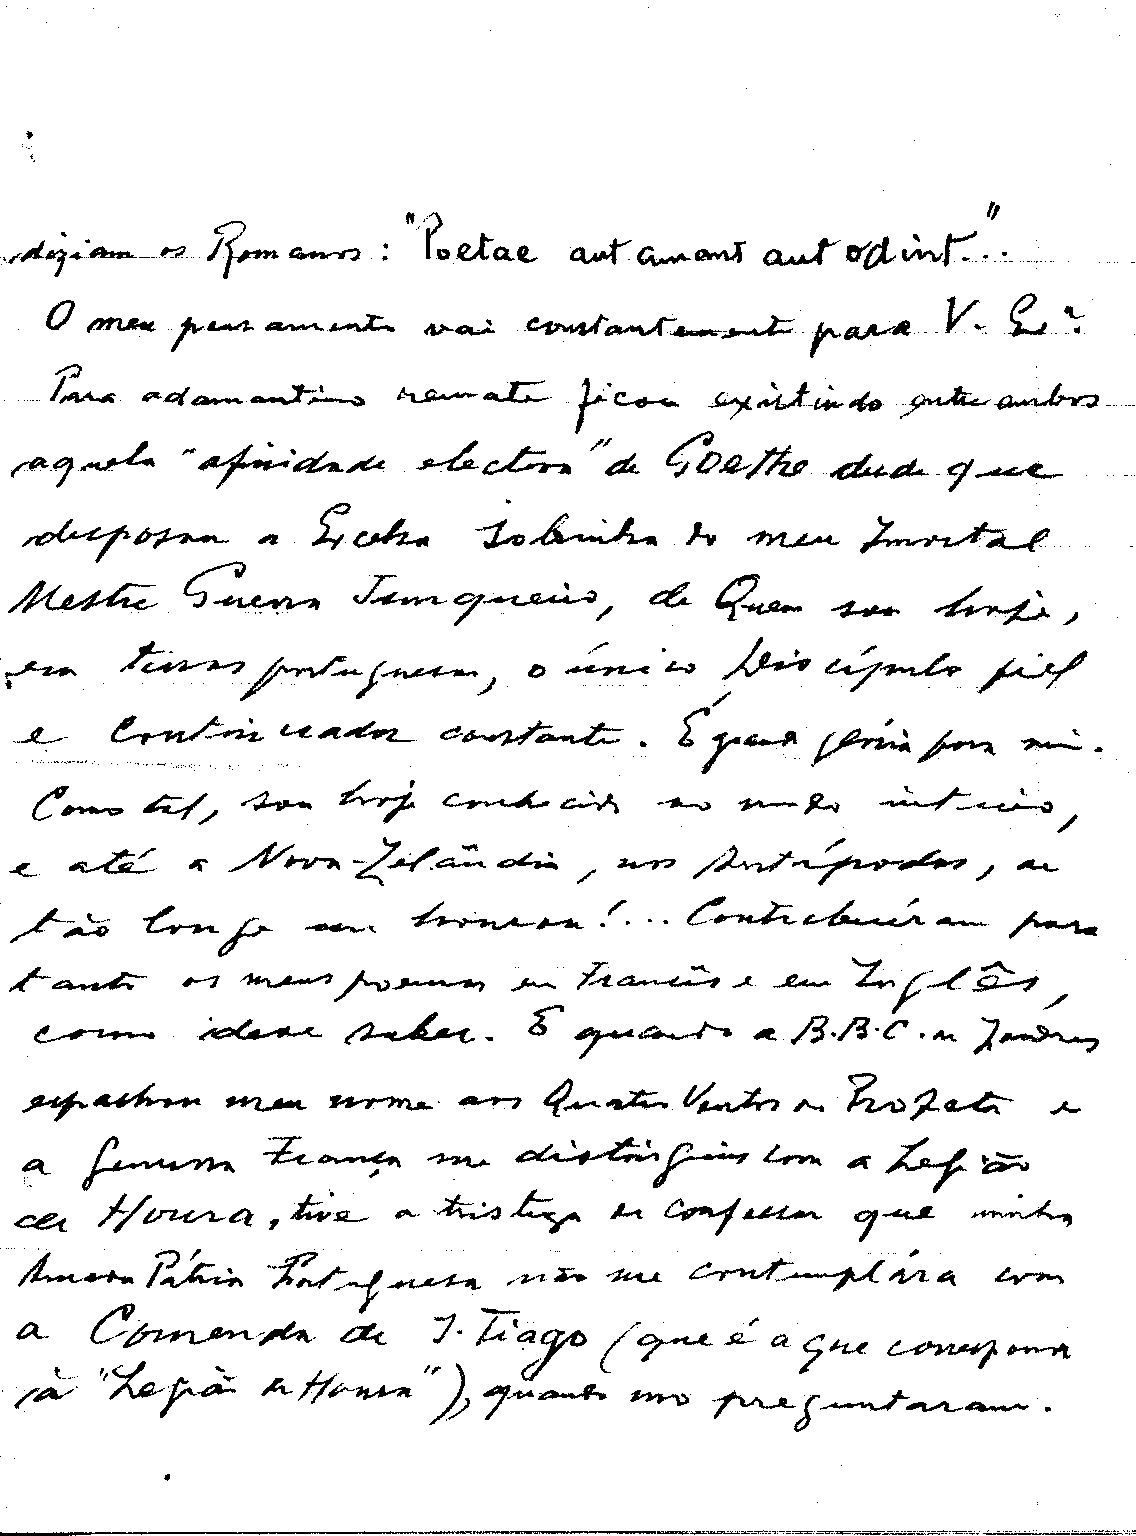 diziam os Romanos: "Poetae aut amant aut odint"...
O meu pensamento vai constantemente para V. Exª.
Para adamantino remate ficou existindo entre ambos
aquela "afinidade electiva" de Goethe desde que
desposou a Excelsa Sobrinha do meu Imortal
Mestre Guerra Junqueiro, de Quem sou hoje,
em terras portuguesas, o único Discípulo fiel
e Continuador constante. É grande glória para mim.
Como tal, sou hoje conhecido no mundo inteiro,
e até a Nova-Zelândia, nos Antípodas, de
tão longe me honrou!... Contribuíram para
tanto os meus poemas em Francês e em Inglês,
como deve saber. E quando a B.B.C. de Londres
espalhou meu nome aos Quatro Ventos de Profeta e
a generosa França me distinguiu com a Legião
de Honra, tive a tristeza de confessar que minha
Amada Pátria Portuguesa não me contemplára com
a Comenda de S. Tiago (que é a que corresponde
à "Legião de Honra"), quando mo preguntaram.